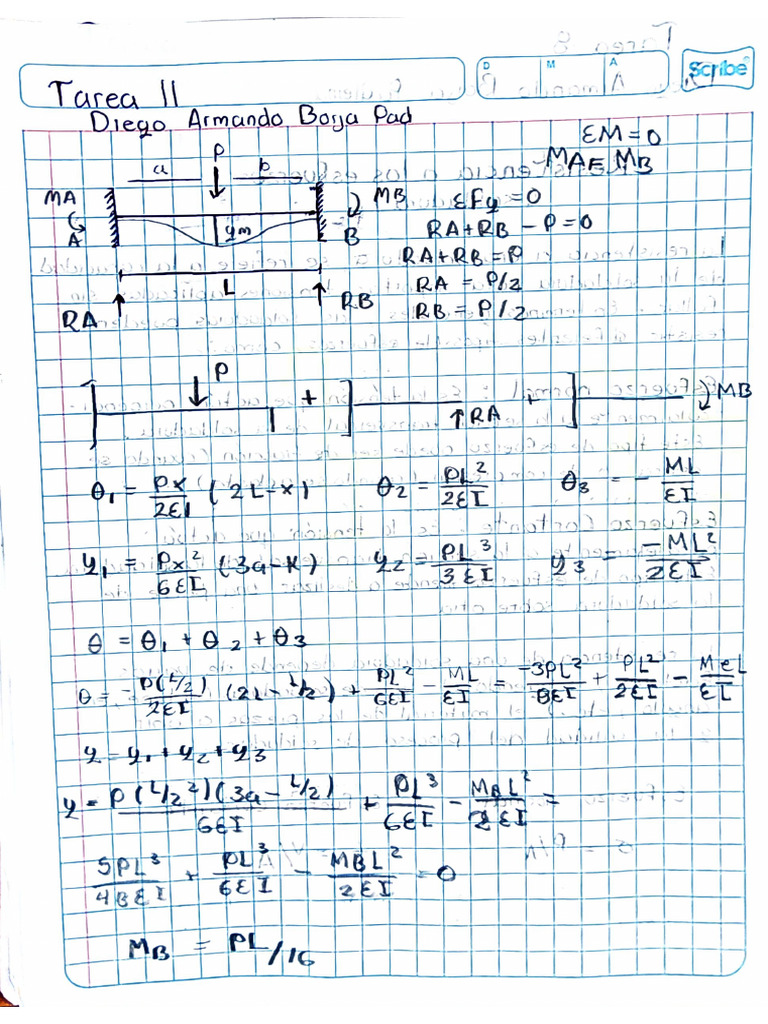 D M A
Scribe
Tarea 11
Diego Armando Borja Pad
εM=0
MA = MB
P
a b
MA MB
εFy = 0
A ym B
RA + RB - P = 0
RA + RB = P
L
RA = P/2
RA RB
RB = P/2
P
+ ↑RA + MB
θ1 = Px/2εI (2L-x) θ2 = PL²/2εI θ3 = - ML/εI
y1 = Px²/6εI (3a-x) y2 = PL³/3εI y3 = -ML²/2εI
θ = θ1 + θ2 + θ3
θ = - P(L/2)/2εI (2L - L/2) + PL²/6εI - ML/εI = -3PL²/8εI + PL²/2εI - MeL/εI
y - y1 + y2 + y3
y = P(L/2²)(3a - L/2)/6εI + PL³/6εI - MAL²/2εI =
5PL³/48εI + PL³/6εI - MBL²/2εI = 0
MB = PL/16